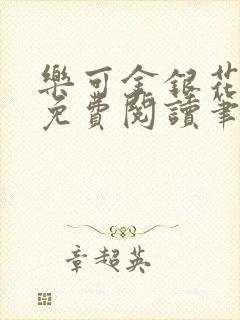 樂可金銀花
免費閱讀筆
章超英